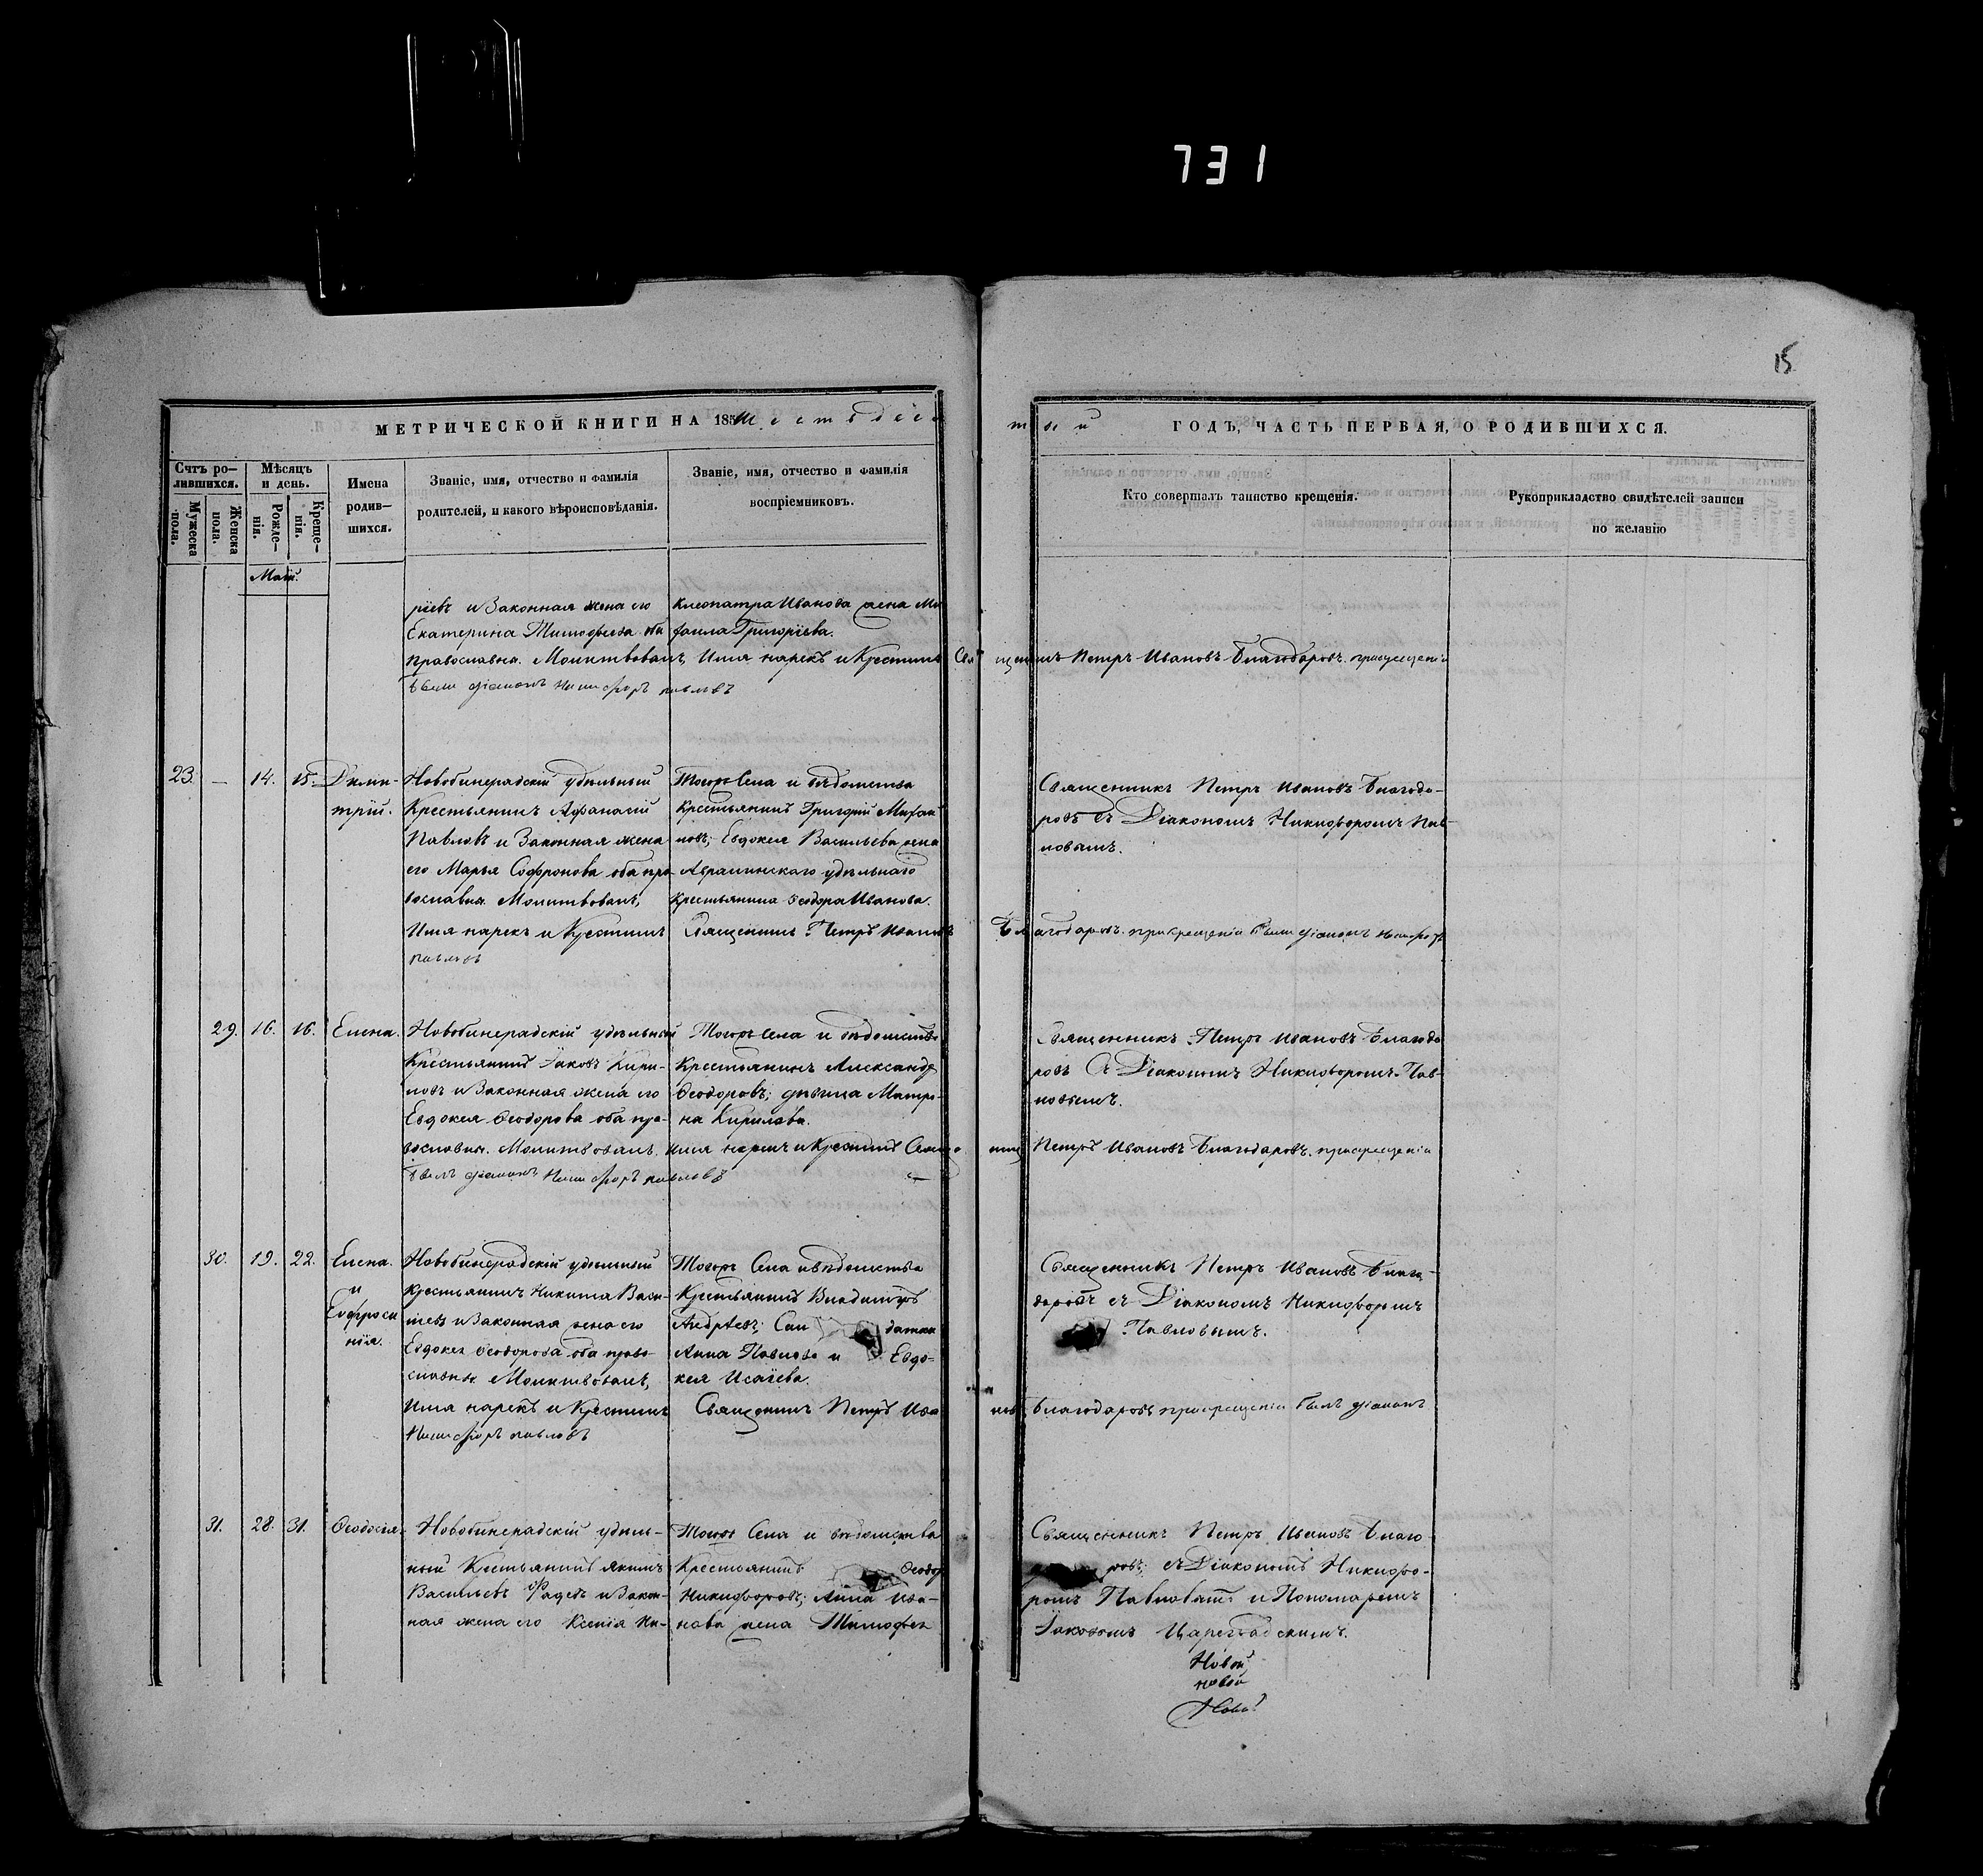 731
15
МЕТРИЧЕСКОЙ КНИГИ НА 185 Шестьдеся
тый ГОДЪ, ЧАСТЬ ПЕРВАЯ, О РОДИВШИХСЯ.
Счтъ ро–
лившихся.
Мужеска
пола.
Женска
пола.
Мѣсяцъ
и день.
Рожде–
нія.
Креще–
нія.
Имена
родив–
шихся.
Званіе, имя, отчество и фамилія
родителей, и какого вѣроисповѣданія.
Званіе, имя, отчество и фамилія
воспріемниковъ.
Кто совершалъ таинство крещенія.
Рукоприкладство свидѣтелей записи
по желанію
Маій.
ріевъ и Законная жена его
Екатерина Тимофеева оба
православн. Молитвовалъ,
Клеопатра Иванова жена Ми
хаила Григоріева.
Имя нарекъ и Крестилъ Священникъ Петръ Ивановъ Благодаровъ. при крещеніи
былъ діаконъ Никифоръ павловъ
23. — 14. 15. Дими-
трій.
Новобинерадскій удѣльный
Крестьянинъ Афанасій
Павловъ и Законная жена
его Марья Софронова оба пра-
вославн. Молитвовалъ,
Тогожъ Села и вѣдомства
Крестьянинъ Григорій Михаи
ловъ; Евдокея Васильева жена
удѣльнаго
Крестьянина Ѳеодора Иванова.
Священникъ Петръ Ивановъ Благода-
ровъ съ Діакономъ Никифоромъ Пав-
ловымъ.
Имя нарекъ и Крестилъ Священникъ Петръ Ивановъ Благодаровъ. при крещеніи былъ діаконъ Никифоръ
павловъ
29. 16. 16. Елена.
Новобинерадскій удѣльный
Крестьянинъ Іаковъ Кири-
ловъ и Законная жена его
Евдокея Ѳеодорова оба пра-
вославн. Молитвовалъ,
Тогожъ Села и вѣдомства
Крестьянинъ Александръ
Ѳеодоровъ; дѣвица Матре-
на Кирилова.
Священникъ Петръ Ивановъ Благода
ровъ Съ Діакономъ Никифоромъ Пав-
ловымъ.
имя нарекъ и Крестилъ Священникъ Петръ Ивановъ Благодаровъ. при крещеніи
былъ діаконъ Никифоръ павловъ
30. 19. 22. Елена.
и
Евфроси
нія.
Новобинерадскій удѣльный
Крестьянинъ Никита Васи-
льевъ и Законная жена его
Евдокея Ѳеодорова оба право-
славны Молитвовалъ,
Тогожъ Села и вѣдомства
Крестьянинъ Владимиръ
Андреевъ; Сол датки
Анна Павлова и Евдо-
кея Исаіева.
Священникъ Петръ Ивановъ Благо-
даровъ съ Діакономъ Никифоромъ
Павловымъ.
Имя нарекъ и Крестилъ Священникъ Петръ Ивановъ Благодаровъ при крещеніи былъ діаконъ
Никифоръ павловъ
31. 28. 31. Ѳеодосія.
Новобинерадскій удѣль-
ный Крестьянинъ Якимъ
Васильевъ Фадѣевъ и Закон-
ная жена его Ксенія Ни-
Тогожъ Села и вѣдомства
Крестьянинъ Ѳеодоръ
Никифоровъ; Анна Ива-
нова жена Тимофея
Священникъ Петръ Ивановъ Благо-
ровъ; съ Діакономъ Никифо-
ромъ Павловымъ и Пономаремъ
Іаковомъ Цареградскимъ.
Новой
новой
Новой